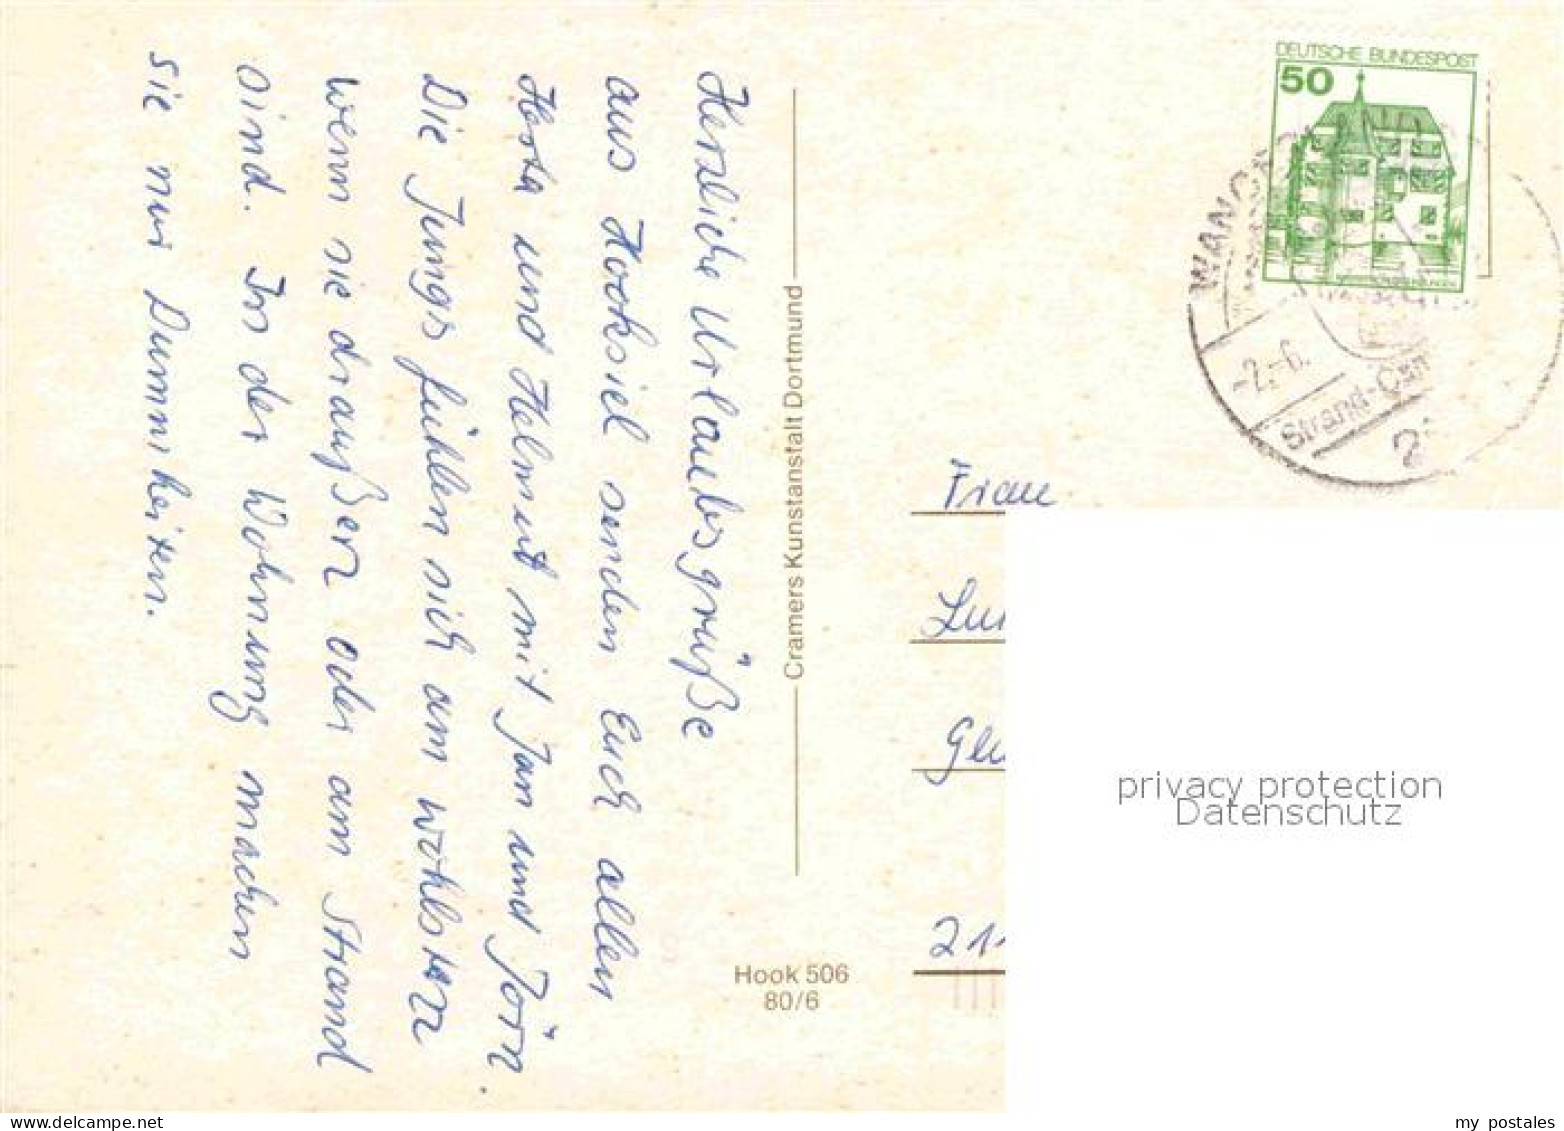 Herzliche Urlaubsgrüße
aus Hooksiel senden Euch allen
Herta und Helmut mit Jan und Jörn.
Die Jungs fühlen sich am wohlsten
wenn sie draußen oder am Strand
sind. In der Wohnung machen
sie nur Dummheiten.
Cramers Kunstanstalt Dortmund
Hook 506
80/6
DEUTSCHE BUNDESPOST
50
-2.-6.
Frau
privacy protection
Datenschutz
my postales